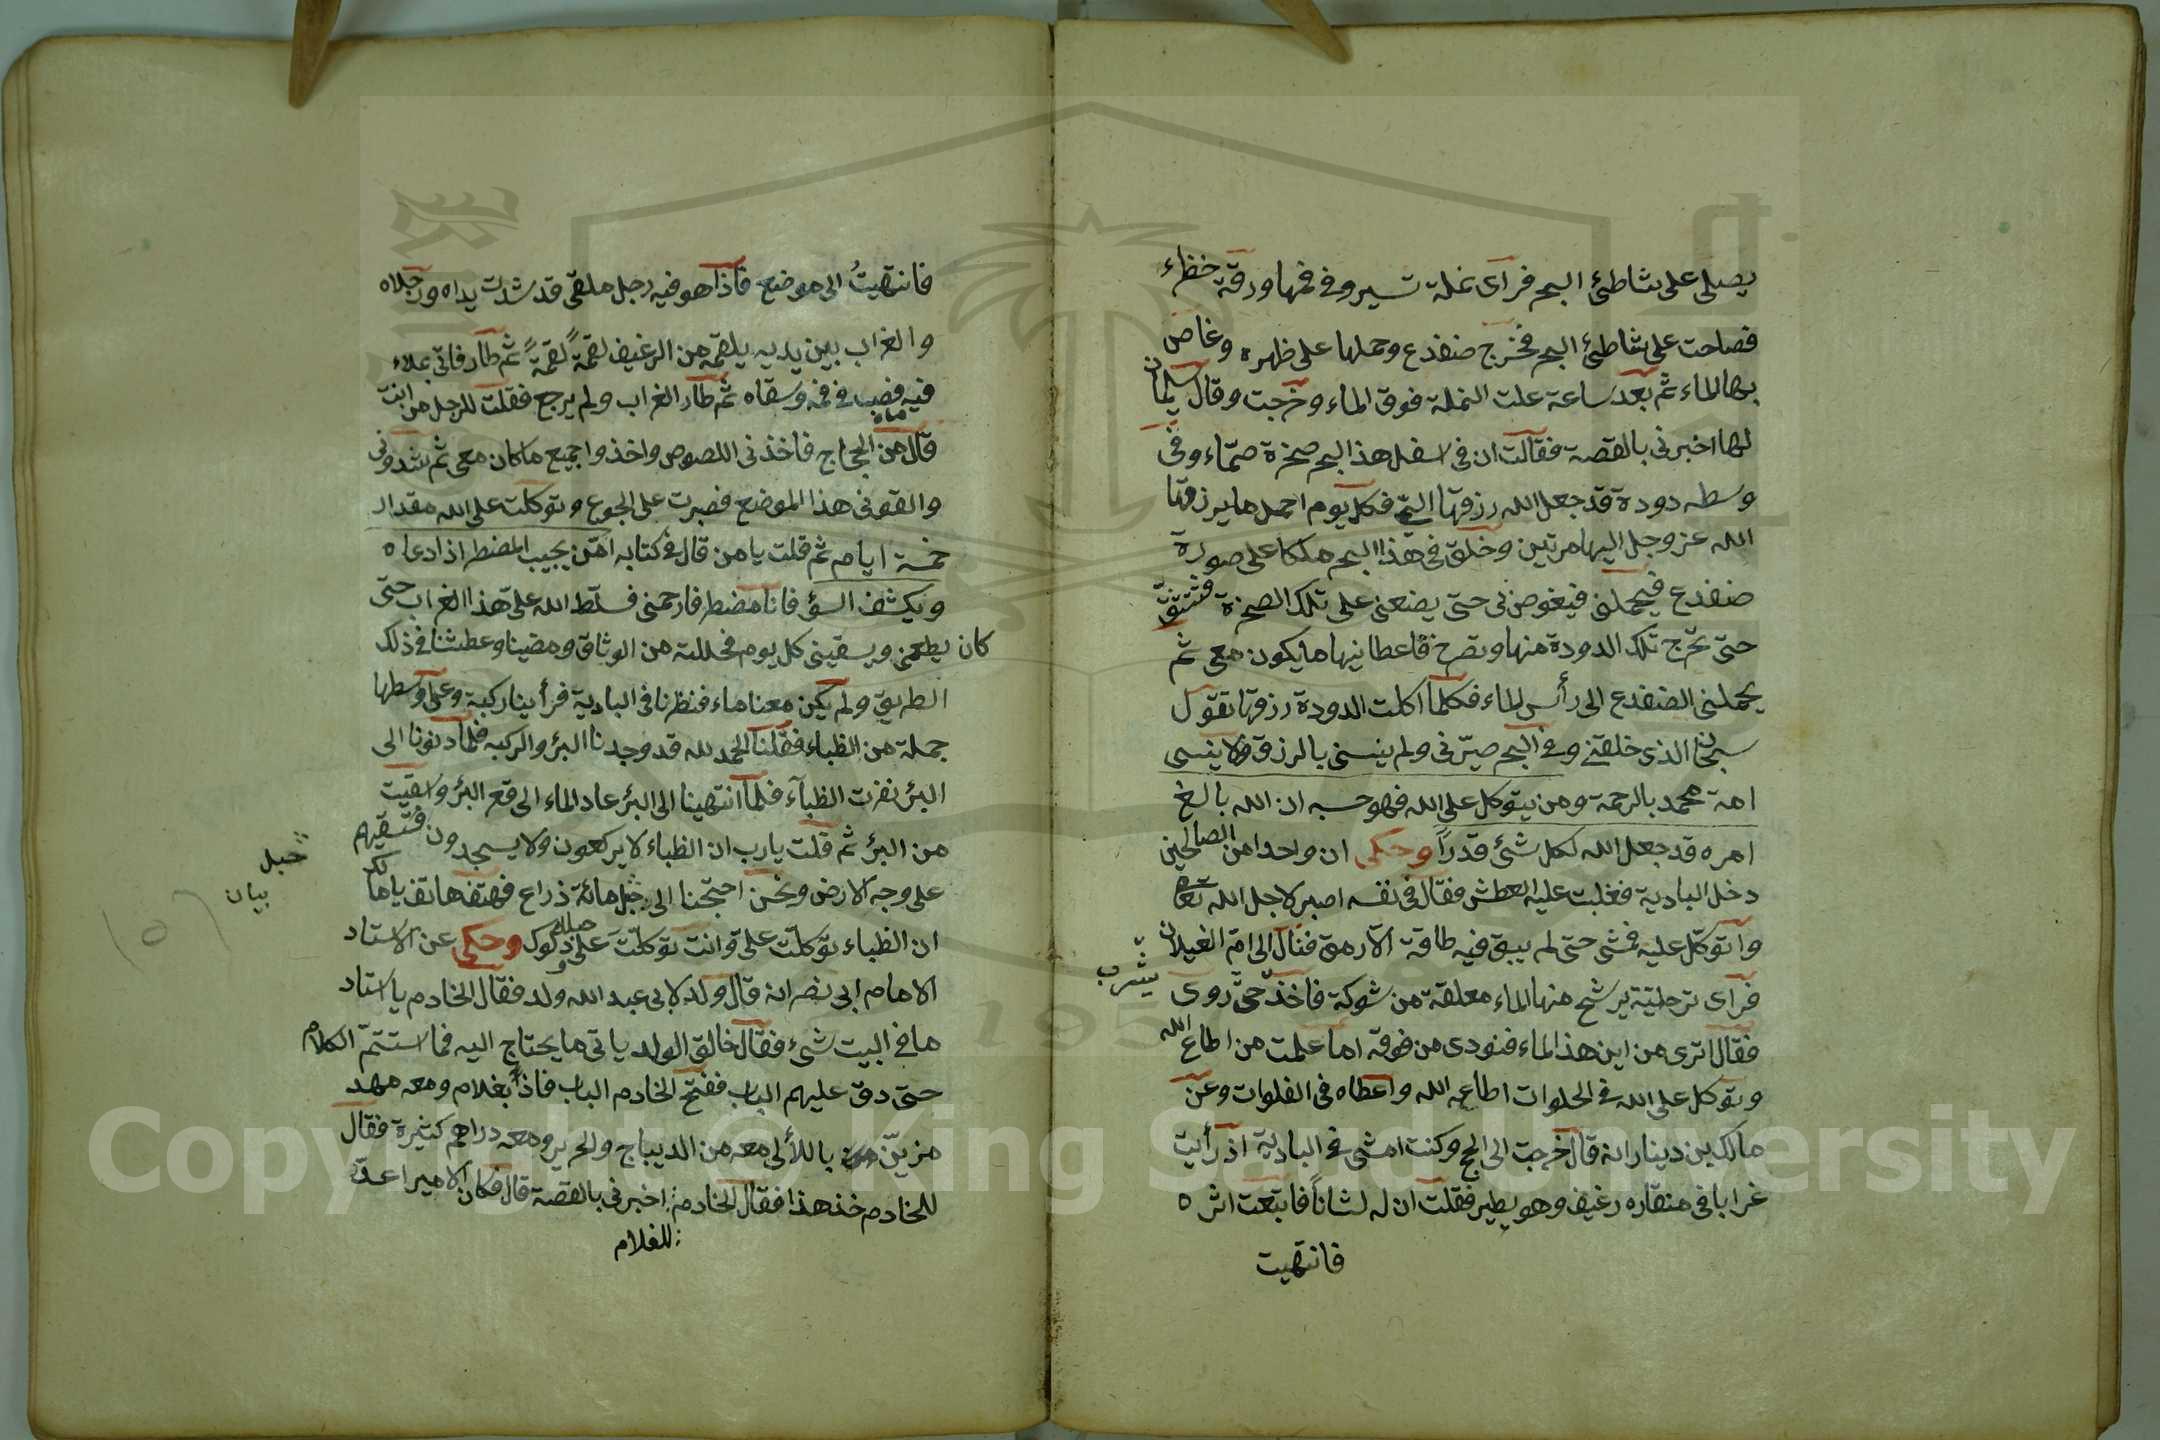 يصلى على شاطئ البحر فراى نملة تسير وفى فمها ورقة خضراء
فصاحت على شاطئ البحر فخرج ضفدع وحملها على ظهره وغاص
بها الماء ثم بعد ساعة علت النملة فوق الماء وخرجت وقال سليمان
لها اخبرنى بالقصة فقالت ان فى اسفل هذا البحر صخرة صمّاء وفى
وسطه دودة قد جعل الله رزقها الىّ فكل يوم احمل ما يرزقها
الله عز وجل اليها مرتين وخلق فى هذا البحر ملكا على صورة
ضفدع فيحملنى فيغوص بى حتى يضعنى على تلك الصخرة فتنشقّ
حتى تخرج تلك الدودة منها وتصرخ فاعطانيها ما يكون معى ثم
يحملنى الضفدع الى رأس الماء فكلما اكلت الدودة رزقها تقول
سبحان الذى خلقنى وفى البحر صيّرنى ولم ينسنى بالرزق ولا ينسى
امة محمد بالرحمة ومن يتوكل على الله فهو حسبه ان الله بالغ
امره قد جعل الله لكل شئ قدرًا وحكى ان واحدا من الصالحين
دخل البادية فغلبت عليه العطش فقال فى نفسه اصبر لاجل الله تعا
واتوكّل عليه فمشى حتى لم يبق فيه طاقة الّا رمق فنال الى امّ الغيلان
فراى يرشح منها الماء معلقة من شوكة فاخذ حتّى روى
يشرب
فقال اترى من اين هذا الماء فنودى من فوقه اما علمت من اطاع الله
وتوكل على الله فى الخلوات اطاعه الله واعطاه فى الفلوات وعن
مالك بن دينار انه قال خرجت الى الحج وكنت امشى فى البادية اذ رأيت
غرابا فى منقاره رغيف وهو يطير فقلت ان له لشانًا فاتبعت اثره
فانتهيت
فانتهيتُ الى موضع فاذا هو فيه رجل ملقى قد شدت يداه ورجلاه
والغراب بين يديه يلقمه من الرغيف لقمةً لقمةً ثم طار فاتى بماء
فيه فصب فى فمه وسقاه ثم طار الغراب ولم يرجع فقلت للرجل من انت
ماه
قال من الحجاج فاخذنى اللصوص واخذوا جميع ما كان معى ثم شدونى
والقونى هذا الموضع فصبرت على الجوع وتوكلت على الله مقدار
خمسة ايام ثم قلت يا من قال فى كتابه امّن يجيب المضطر اذا دعاه
ويكشف السؤ فانا مضطر فارحمنى فسلّط الله علىّ هذا الغراب حتى
كان يطعمنى ويسقينى كل يوم فحللته من الوثاق ومضينا وعطشنا فى ذلك
الطريق ولم يكن معنا ماء فنظرنا فى البادية فرأينا ركية وعلى وسطها
جملة من الظباء فقلنا الحمد لله قد وجدنا البئر والركيه فلما دنونا الى
البئر نفرت الظبآء فلما انتهينا الى البئر عاد الماء الى قعر البئر واسقيت
من البئر ثم قلت يا رب ان الظباء لا يركعون ولا يسجدون فتسقيهم
على وجه الارض ونحن احتجنا الى حبل مائة ذراع فهتف هاتف يا مالك
حبل
بيان
ان الظباء توكلت علىّ وانت توكلتَ على دلوك وحبلك وحكى عن الاستاد
الامام ابى نصر انه قال ولد لابى عبد الله ولد فقال الخادم يا استاد
ما فى البيت شىء فقال خالق الولد ياتى ما يحتاج اليه فما استتمّ الكلام
حتى دق عليهم الباب ففتح الخادم الباب فاذا بغلام ومعه مهد
مزيّن باللألى معه من الديباج والحرير ومعه دراهم كثيرة فقال
للخادم خذ هذا فقال الخادم اخبرنى بالقصة قال فكان الامير اعدّ
للغلام
Copyright © King Saud University